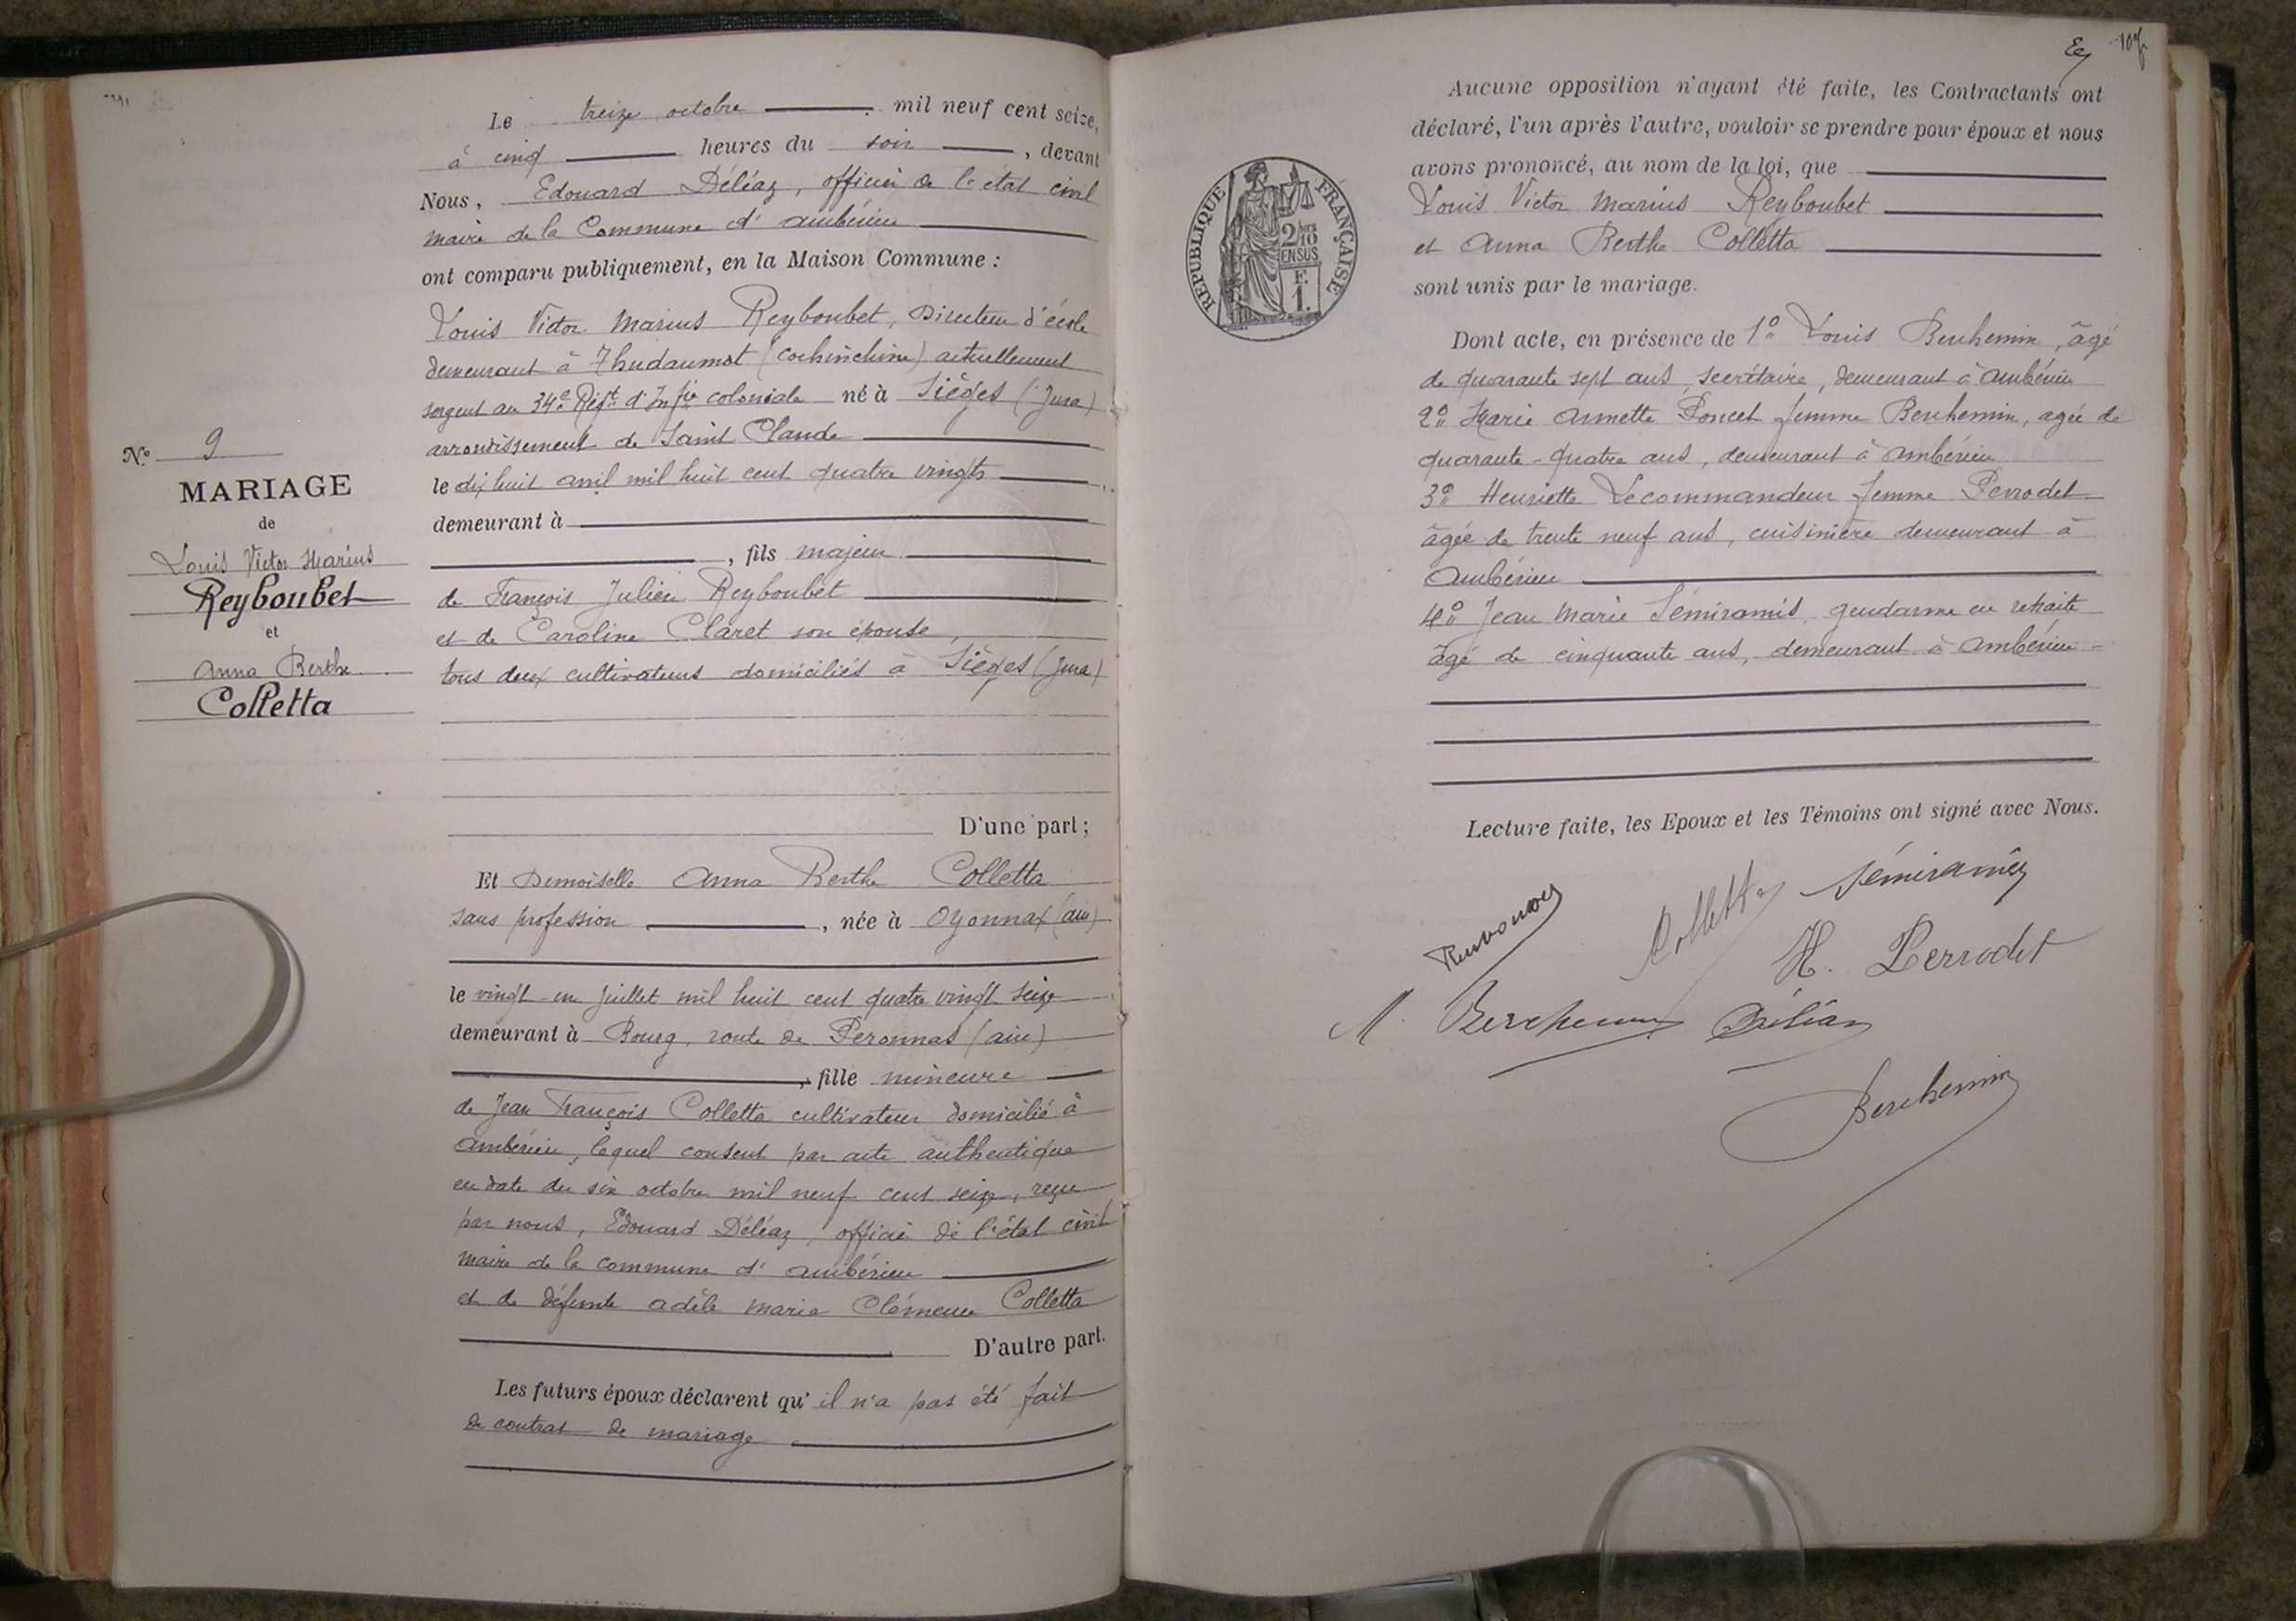 Le treize octobre mil neuf cent seize,
à cinq heures du soir, devant
Nous, Edouard Déléaz, officier de l'état civil
maire de la Commune d'ambérieu
ont comparu publiquement, en la Maison Commune :
Louis Victor Marius Reyboubet, Directeur d'école
demeurant à Thudaumot (cochinchine) actuellement
sergent au 34e Régt d'Infie coloniale né à Sièges (Jura)
arrondissement de Saint Claude
le dix huit avril mil huit cent quatre vingts
demeurant à
, fils majeur
de François Julien Reyboubet
et de Caroline Claret son épouse,
tous deux cultivateurs domiciliés à Sièges (Jura)
D'une part ;
Et Demoiselle Anna Berthe Colletta
sans profession, née à Oyonnax (ain)
le vingt-un juillet mil huit cent quatre vingt seize
demeurant à Bourg, route de Peronnas (ain)
, fille mineure
de Jean François Colletta cultivateur domicilié à
ambérieu, lequel consent par acte authentique
en date du six octobre mil neuf cent seize, reçu
par nous, Edouard Déléaz, officier de l'état civil
maire de la commune d'ambérieu
et de défunte adèle marie Clémence Colletta
D'autre part.
Les futurs époux déclarent qu'il n'a pas été fait
de contrat de mariage
N° 9
MARIAGE
de
Louis Victor Marius
Reyboubet
et
Anna Berthe
Colletta
Aucune opposition n'ayant été faite, les Contractants ont
déclaré, l'un après l'autre, vouloir se prendre pour époux et nous
avons prononcé, au nom de la loi, que
Louis Victor Marius Reyboubet
et Anna Berthe Colletta
sont unis par le mariage.
RÉPUBLIQUE FRANÇAISE
2/10 EN SUS
F.
1.
Dont acte, en présence de 1° Louis Berchemin, âgé
de quarante sept ans, secrétaire, demeurant à ambérieu
2° Marie Annette Poncet femme Berchemin, agée de
quarante-quatre ans, demeurant à ambérieu
3° Henriette Lecommandeur femme Perrodet
âgée de trente neuf ans, cuisinière demeurant à
Ambérieu
4° Jean Marie Sémiramis, gendarme en retraite
âgé de cinquante ans, demeurant à Ambérieu
Lecture faite, les Epoux et les Témoins ont signé avec Nous.
Colletta Sémiramis
H. Perrodet
M. Berchemin Déléaz
Berchemin